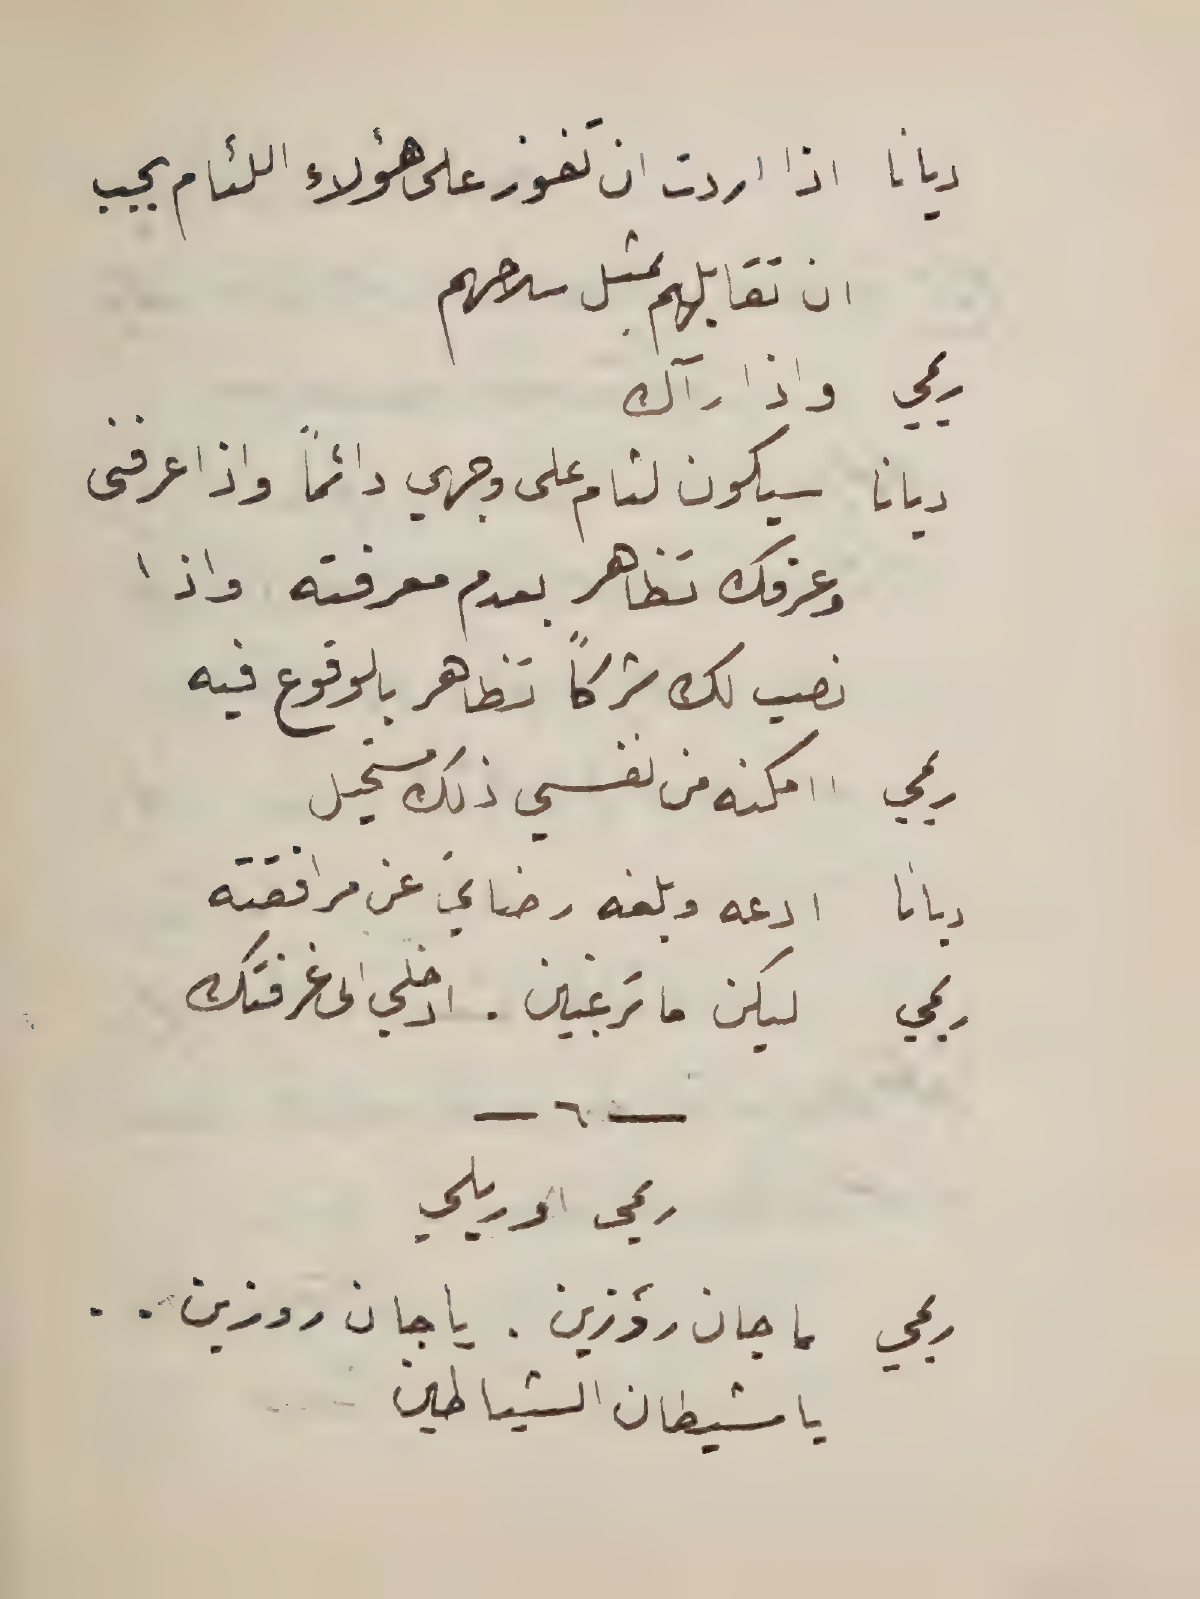 ديانا اذا اردت ان تفوز على هؤلاء اللئام يجب
ان تقابلهم بمثل سلاحهم
ريمي واذا رآك
ديانا سيكون لثام على وجهي دائماً واذا عرفني
وعرفك تظاهر بعدم معرفته واذا
نصب لك شركاً تظاهر بالوقوع فيه
ريمي اامكنه من نفسي ذلك مستحيل
ديانا ادعه وبلغه رضايَ عن مرافقته
ريمي ليكن ما ترغبين . ادخلي الى غرفتك
— ٦ —
ريمي اوريلي
ريمي يا جان روزين . يا جان روزين . .
يا شيطان الشياطين